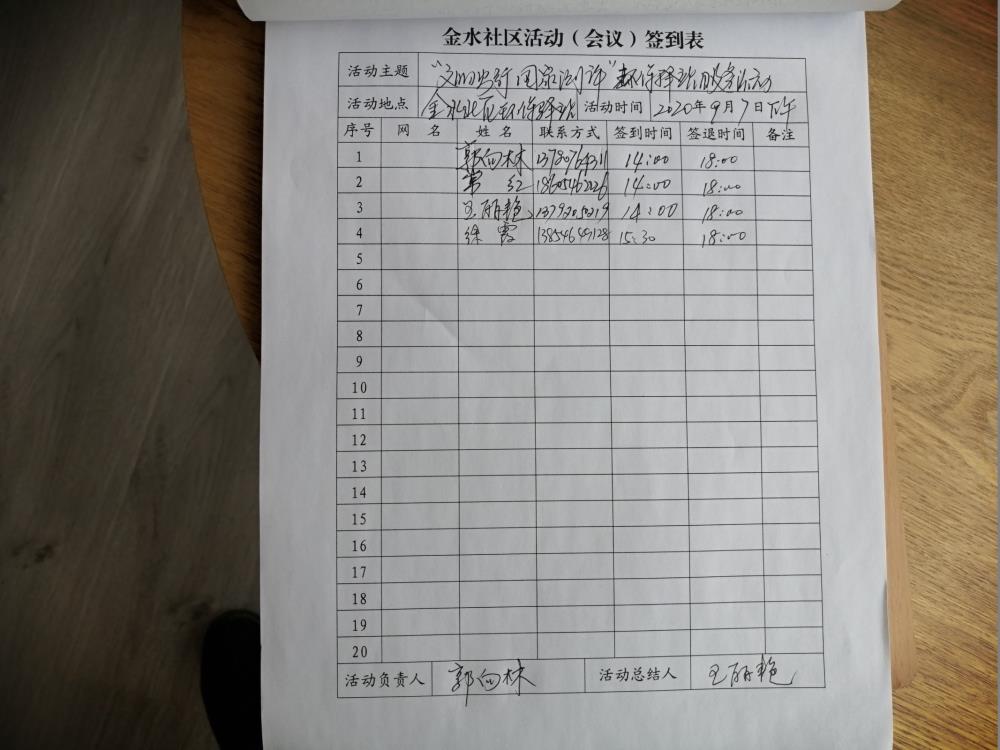 金水社区活动（会议）签到表
活动主题 环保驿站服务活动
活动地点 金水社区环保驿站 活动时间 2020年9月7日下午
序号 网 名 姓 名 联系方式 签到时间 签退时间 备注
1 郭向林 14:00 18:00
2 常 红 14:00 18:00
3 王丽艳 14:00 18:00
4 徐 霞 15:30 18:00
5
6
7
8
9
10
11
12
13
14
15
16
17
18
19
20
活动负责人 郭向林 活动总结人 王丽艳